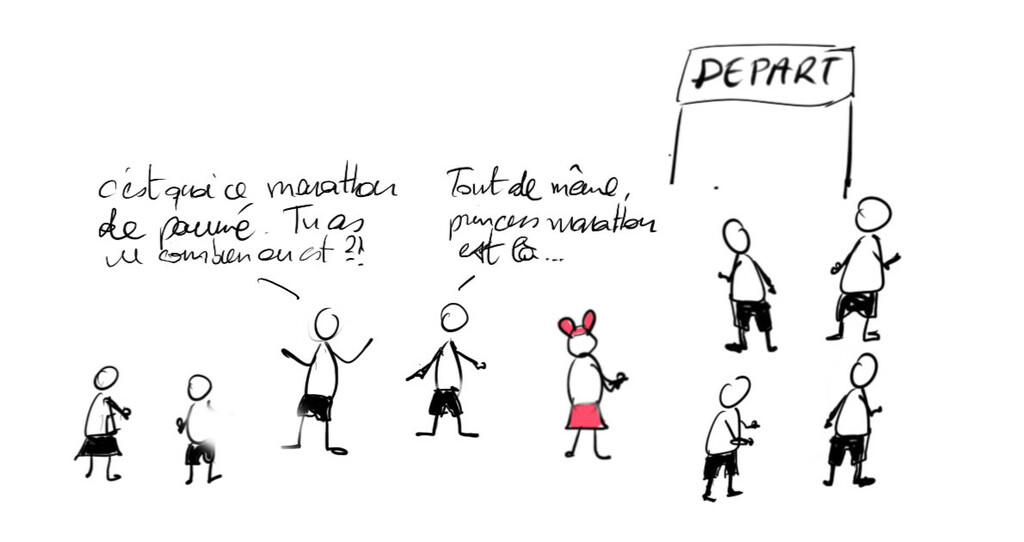 DEPART
c'est quoi ce marathon
de paumé. Tu as
vu combien on est ?!
Tout de même,
princess marathon
est là...